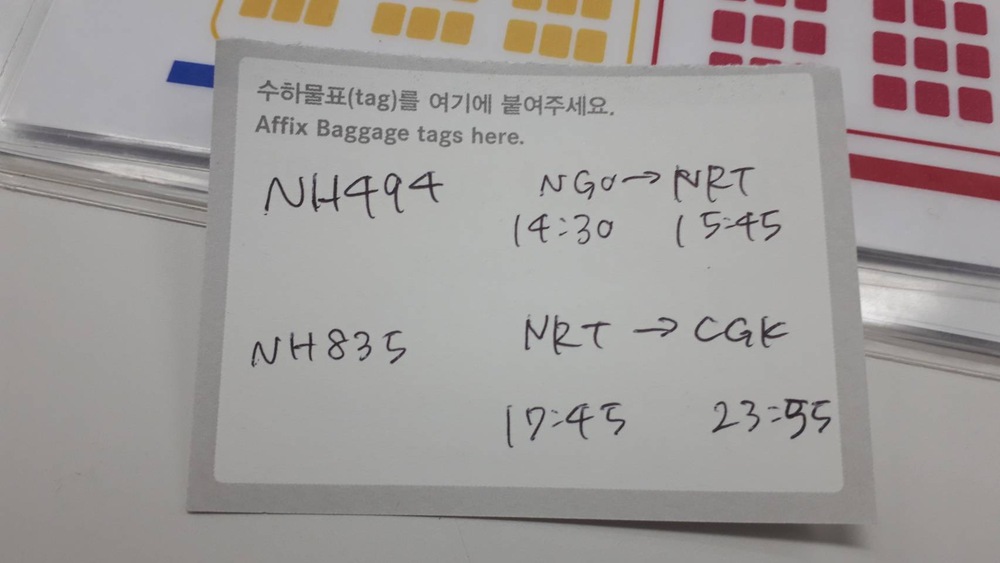 수하물표(tag)를 여기에 붙여주세요.
Affix Baggage tags here.
NH494 NGO→NRT
14:30 15:45
NH835 NRT→CGK
17:45 23:55